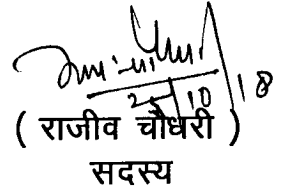 25/10/18
( राजीव चौधरी )
सदस्य